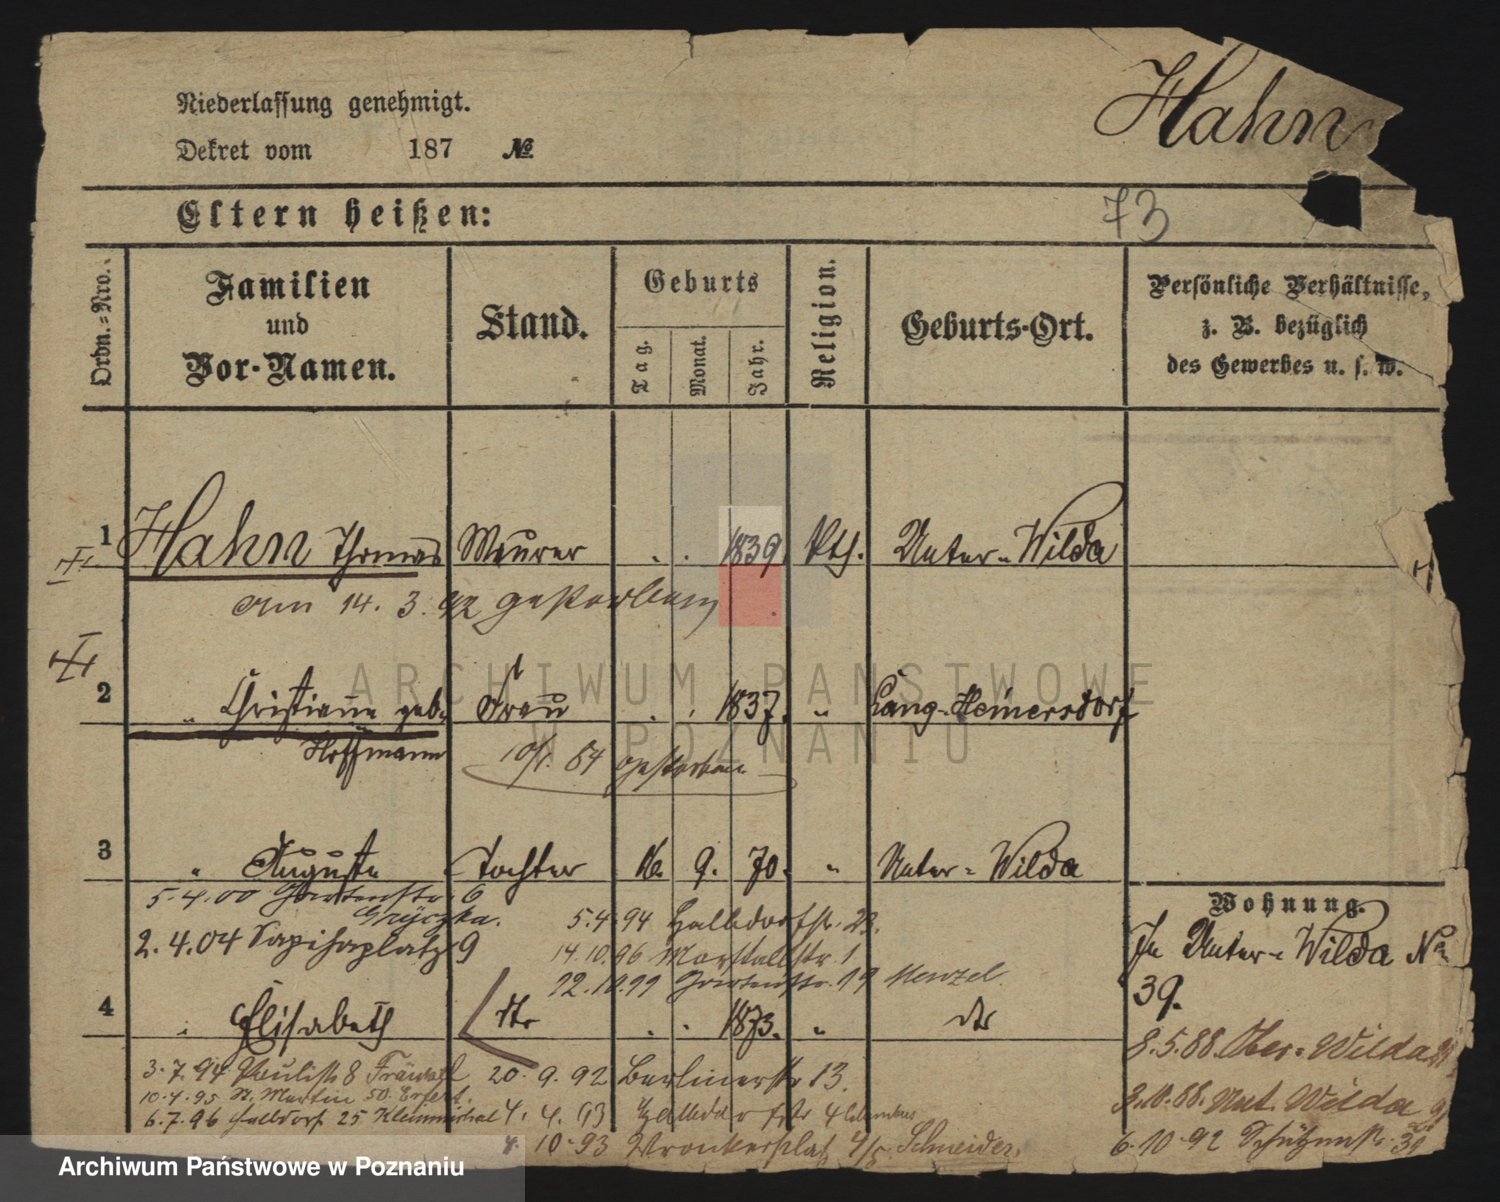 Niederlassung genehmigt.
Hahn
Dekret vom 187 №
Eltern heißen:
73
Ordn.-Nro.
Familien und Vor-Namen.
Stand.
Geburts
Tag.
Monat.
Jahr.
Religion.
Geburts-Ort.
Persönliche Verhältnisse,
z. B. bezüglich
des Gewerbes u. s. w.
1 Hahn Thomas Maurer 1839. kth. Unter-Wilda
am 14. 3. 92 gestorben
2 " Christiane geb. Frau 1837. " Lang-Heinersdorf
Hoffmann gestorben
3 " Auguste Tochter 9. 70. " Unter-Wilda
Wohnung.
5.4.00 Gartenstr. 6
Gryczka. 5.4.94 Halbdorfstr. 22.
In Unter-Wilda No
39.
2.4.04 Sapihaplatz 9 14.10.96 Marstallstr. 1
22.10.99 Gartenstr. 19 Menzel.
4 " Elisabeth dto 1873. " dto
8.5.88. Ober-Wilda
3.7.94 Paulistr. 8 20.9.92 Berlinerstr. 13.
10.4.95 St. Martin 50.
3.10.88. Unt. Wilda
6.7.96 Halbdorf 25 4.4.93 Halbdorfstr. 4
10.93 Wronkerplatz 4/5 Schneider.
6.10.92 Schützenstr.
ARCHIWUM PAŃSTWOWE
W POZNANIU
Archiwum Państwowe w Poznaniu